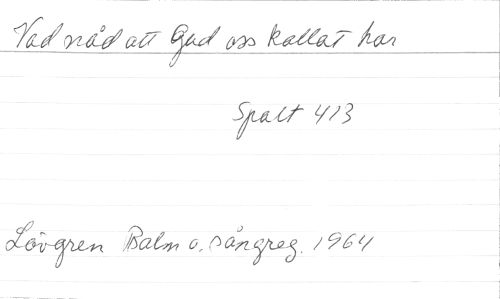 Vad nåd att Gud oss kallat har
Spalt 413
Lövgren Psalm o. sångreg. 1964